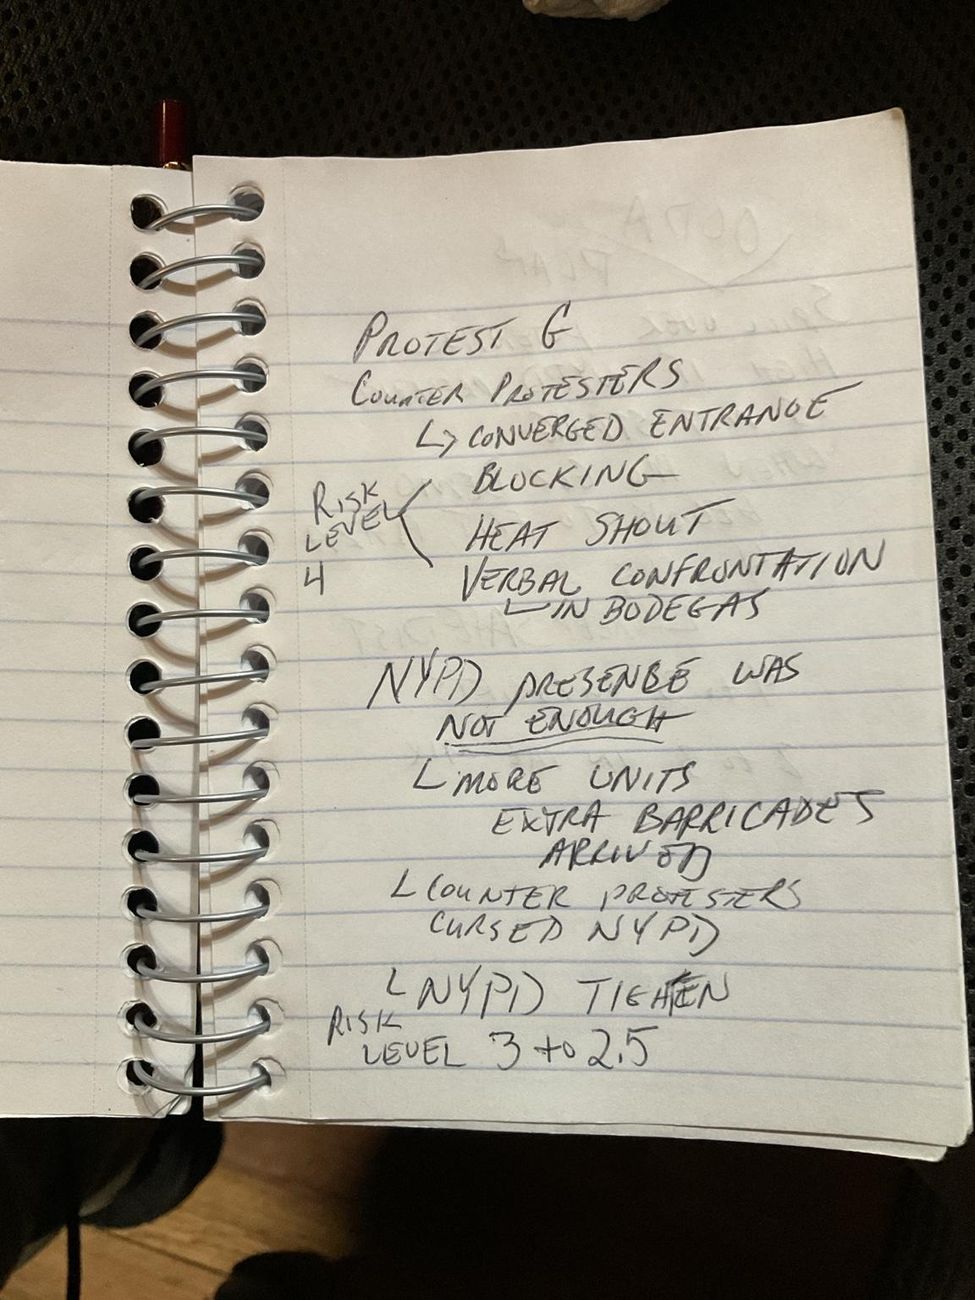 PROTEST G
COUNTER PROTESTERS
↳ CONVERGED ENTRANCE
BLOCKING
RISK
LEVEL
4
HEAT SHOUT
VERBAL CONFRONTATION
IN BODEGAS
NYPD PRESENBE WAS
NOT ENOUGH
MORE UNITS
EXTRA BARRICADES
ARRIVED
COUNTER PROTESTERS
CURSED NYPD
NYPD TIGHTEN
RISK
LEVEL 3 to 2.5